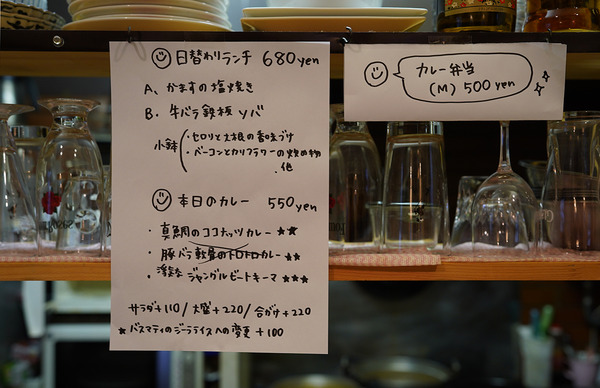 日替わりランチ 680yen
A、かますの塩焼き
B、牛バラ鉄板ソバ
小鉢
・セロリと大根の香味づけ
・ベーコンとカリフラワーの炒め物
・他
本日のカレー 550yen
・真鯛のココナッツカレー ★★
・豚バラ軟骨のトロトロカレー ★★
・ジャングルビートキーマ ★★★
サラダ+110/大盛+220/合がけ+220
★バスマティのジーラライスへの変更 +100
カレー弁当
(M) 500yen